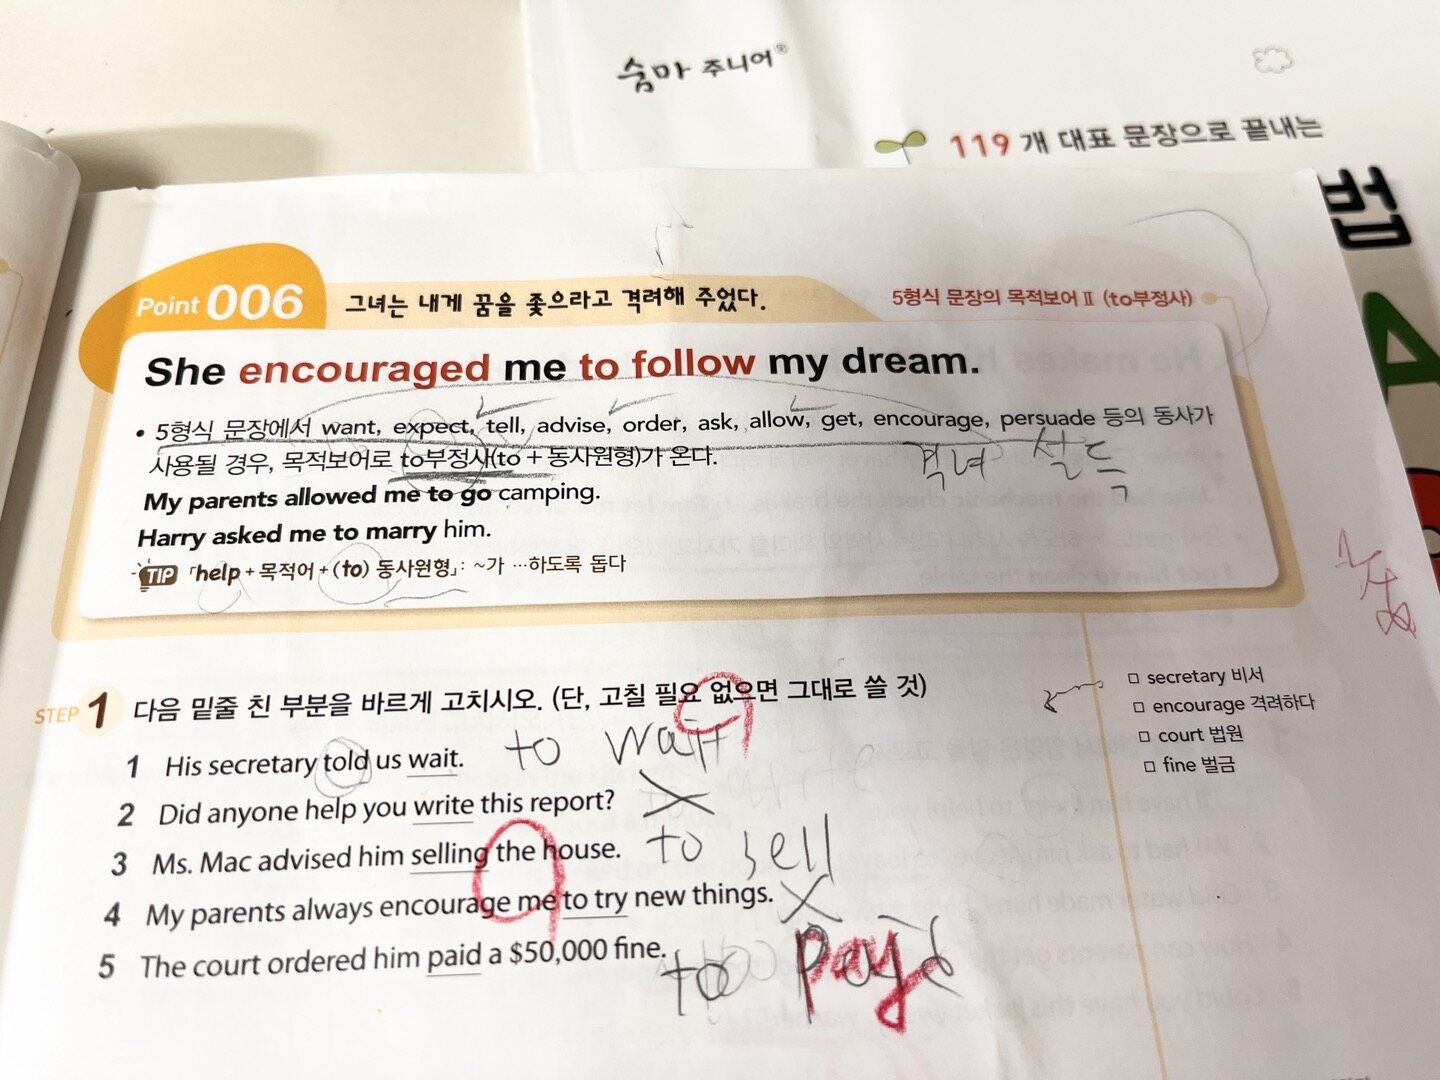 숨마 주니어®
119개 대표 문장으로 끝내는
법
A
Point 006 그녀는 내게 꿈을 좇으라고 격려해 주었다.
5형식 문장의 목적보어 II (to부정사)
She encouraged me to follow my dream.
• 5형식 문장에서 want, expect, tell, advise, order, ask, allow, get, encourage, persuade 등의 동사가
사용될 경우, 목적보어로 to부정사(to + 동사원형)가 온다.
격녀 설득
My parents allowed me to go camping.
Harry asked me to marry him.
TIP 「help + 목적어 + (to) 동사원형」: ~가 …하도록 돕다
STEP 1 다음 밑줄 친 부분을 바르게 고치시오. (단, 고칠 필요 없으면 그대로 쓸 것)
1 His secretary told us wait. to wait
2 Did anyone help you write this report? X
3 Ms. Mac advised him selling the house. to sell
4 My parents always encourage me to try new things. X
5 The court ordered him paid a $50,000 fine. to pay
□ secretary 비서
□ encourage 격려하다
□ court 법원
□ fine 벌금